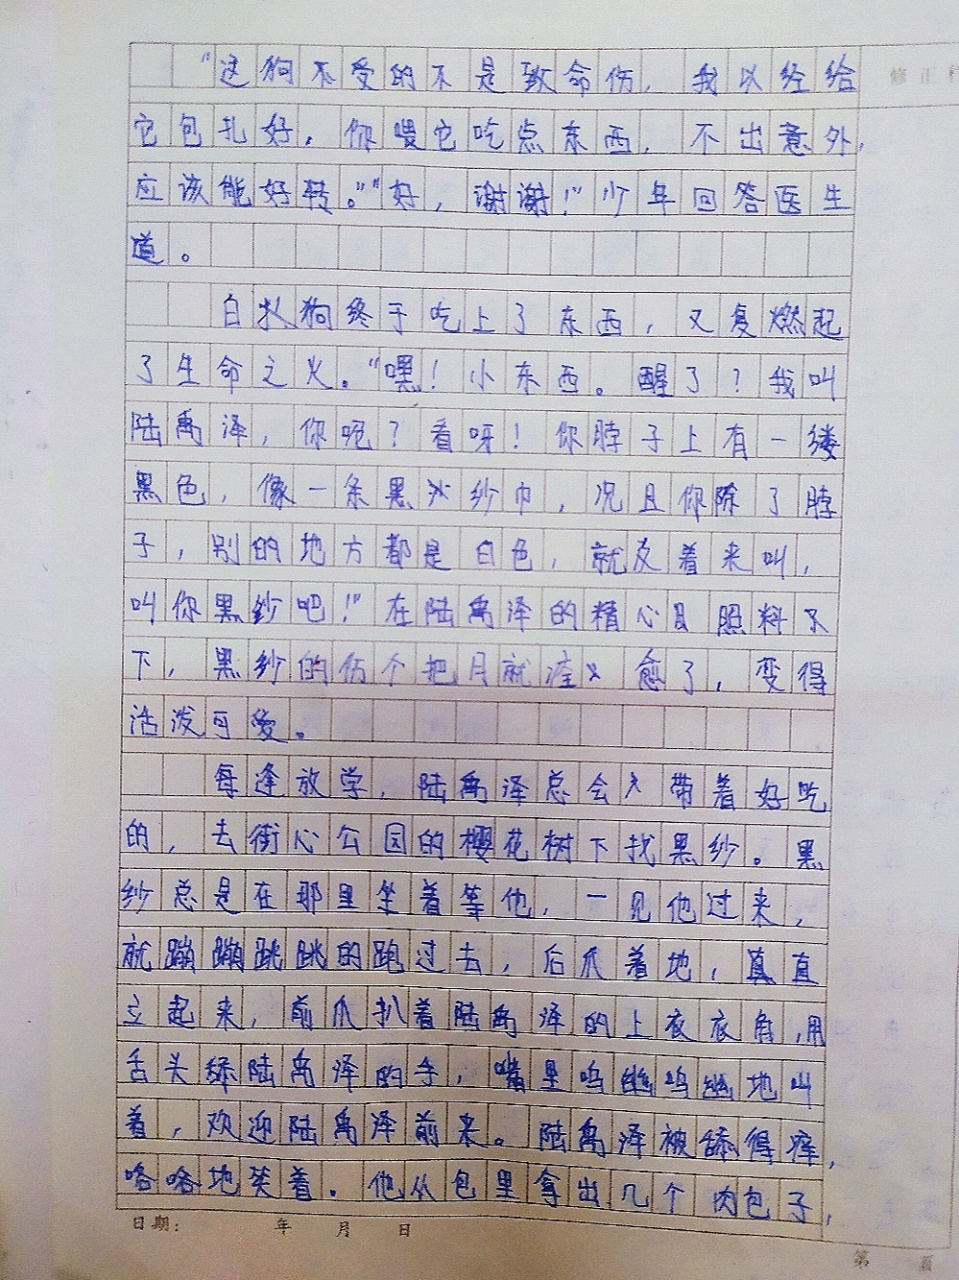 修正
“这狗不受的不是致命伤，我以经给
它包扎好，你喂它吃点东西，不出意外，
应该能好转。”“好，谢谢！”少年回答医生
道。
白狗终于吃上了东西，又复燃起
了生命之火。“嘿！小东西。醒了？我叫
陆禹泽，你呢？看呀！你脖子上有一缕
黑色，像一条黑纱巾，况且你除了脖
子，别的地方都是白色，就反着来叫，
叫你黑纱吧！”在陆禹泽的精心照料
下，黑纱的伤个把月就愈了，变得
活泼可爱。
每逢放学，陆禹泽总会带着好吃
的，去街心公园的樱花树下找黑纱。黑
纱总是在那里坐着等他，一见他过来，
就蹦蹦跳跳的跑过去，后爪着地，直
立起来，前爪扒着陆禹泽的上衣衣角，用
舌头舔陆禹泽的手，嘴里呜幽呜幽地叫
着，欢迎陆禹泽前来。陆禹泽被舔得痒，
咯咯地笑着。他从包里拿出几个肉包子，
日期： 年 月 日
第 页